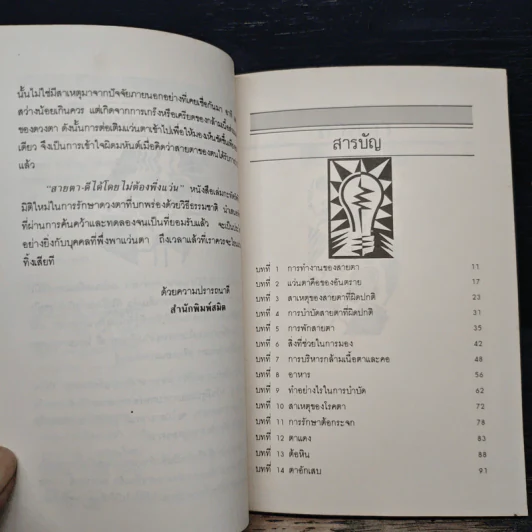 นั้นไม่ใช่มีสาเหตุมาจากปัจจัยภายนอกอย่างที่เคยเชื่อกันมา อาทิ
สว่างน้อยเกินควร แต่เกิดจากการเกร็งหรือเครียดของกล้ามเนื้อ
ของดวงตา ดังนั้นการต่อเติมแว่นตาเข้าไปเพื่อให้มองเห็นชัดขึ้น
เดียว จึงเป็นการเข้าใจผิดมหันต์เมื่อคิดว่าสายตาของตนได้รับ
แล้ว
"สายตา-ดีได้โดยไม่ต้องพึ่งแว่น" หนังสือเล่มกะทัดรัด
มิติใหม่ในการรักษาดวงตาที่บกพร่องด้วยวิธีธรรมชาติ
ที่ผ่านการค้นคว้าและทดลองจนเป็นที่ยอมรับแล้ว
อย่างยิ่งกับบุคคลที่พึ่งพาแว่นตา ถึงเวลาแล้วที่เราควรจะ
ทิ้งเสียที
ด้วยความปรารถนาดี
สำนักพิมพ์สมิต
สารบัญ
บทที่ 1 การทำงานของสายตา 11
บทที่ 2 แว่นตาคือของอันตราย 17
บทที่ 3 สาเหตุของสายตาที่ผิดปกติ 23
บทที่ 4 การบำบัดสายตาที่ผิดปกติ 31
บทที่ 5 การพักสายตา 35
บทที่ 6 สิ่งที่ช่วยในการมอง 42
บทที่ 7 การบริหารกล้ามเนื้อตาและคอ 48
บทที่ 8 อาหาร 56
บทที่ 9 ทำอย่างไรในการบำบัด 62
บทที่ 10 สาเหตุของโรคตา 72
บทที่ 11 การรักษาต้อกระจก 78
บทที่ 12 ตาแดง 83
บทที่ 13 ต้อหิน 88
บทที่ 14 ตาอักเสบ 91